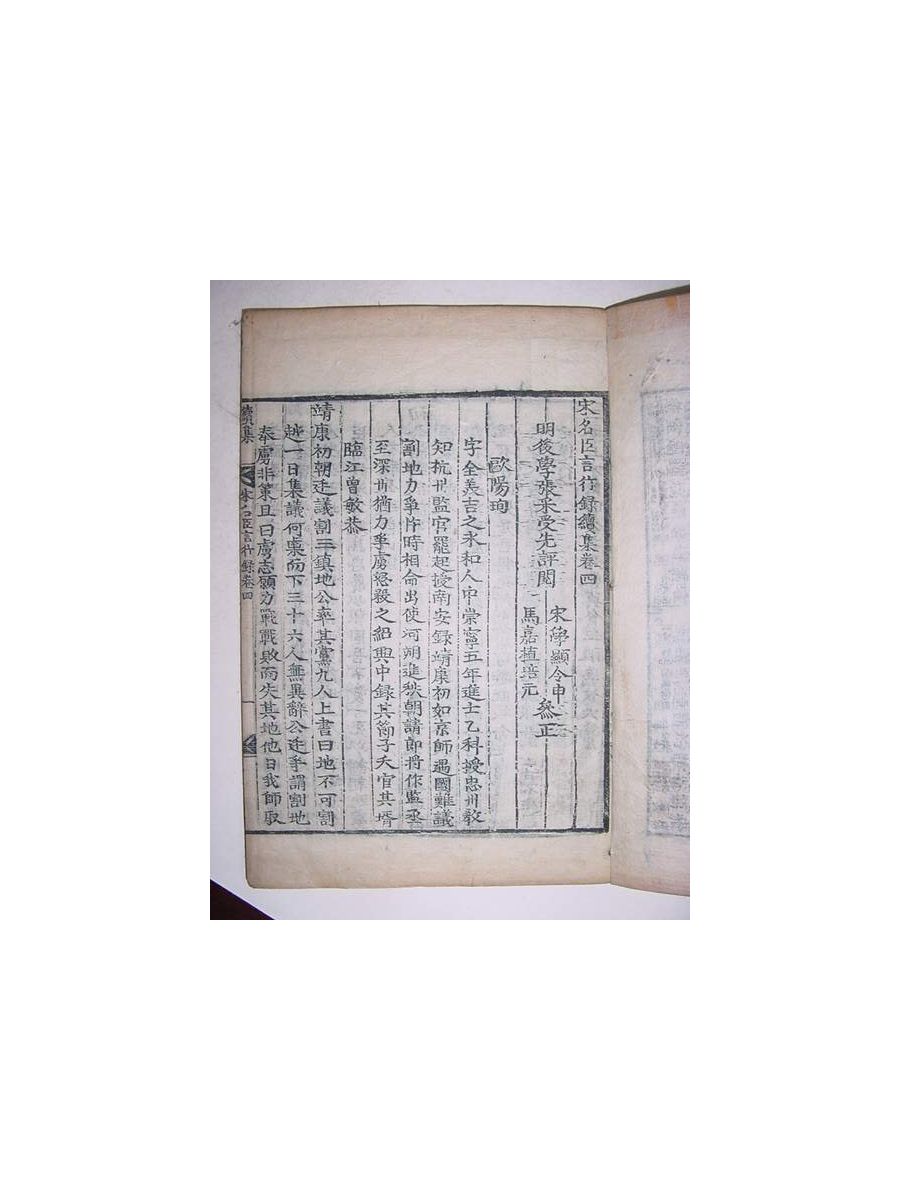 宋名臣言行録續集卷四
明後學張采受先評閱
宋學顯令申
馬嘉植培元
叅正
歐陽珣
字全美吉之永和人中崇寧五年進士乙科授忠州敎
知杭州監官罷起授南安録靖康初如京師遇國難議
割地力爭片時相命出使河朔進秩朝請郎將作監丞
至深州猶力爭虜怒殺之紹興中録其節子夭官其壻
臨江曾敏恭
靖康初朝廷議割三鎮地公率其黨九人上書曰地不可割
越一日集議何㮚而下三十六人無異辭公廷爭謂割地
奉虜非策且曰虜志願力戰戰敗而失其地他日我師取
續集
宋名臣言行録卷四